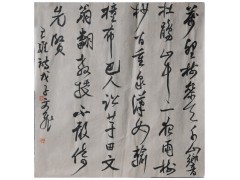 萬壑樹參天千山響
杜鵑山中一夜雨樹
杪百重泉漢女輸
橦布巴人訟芋田文
翁翻教授不敢倚
先賢
王維詩戊子